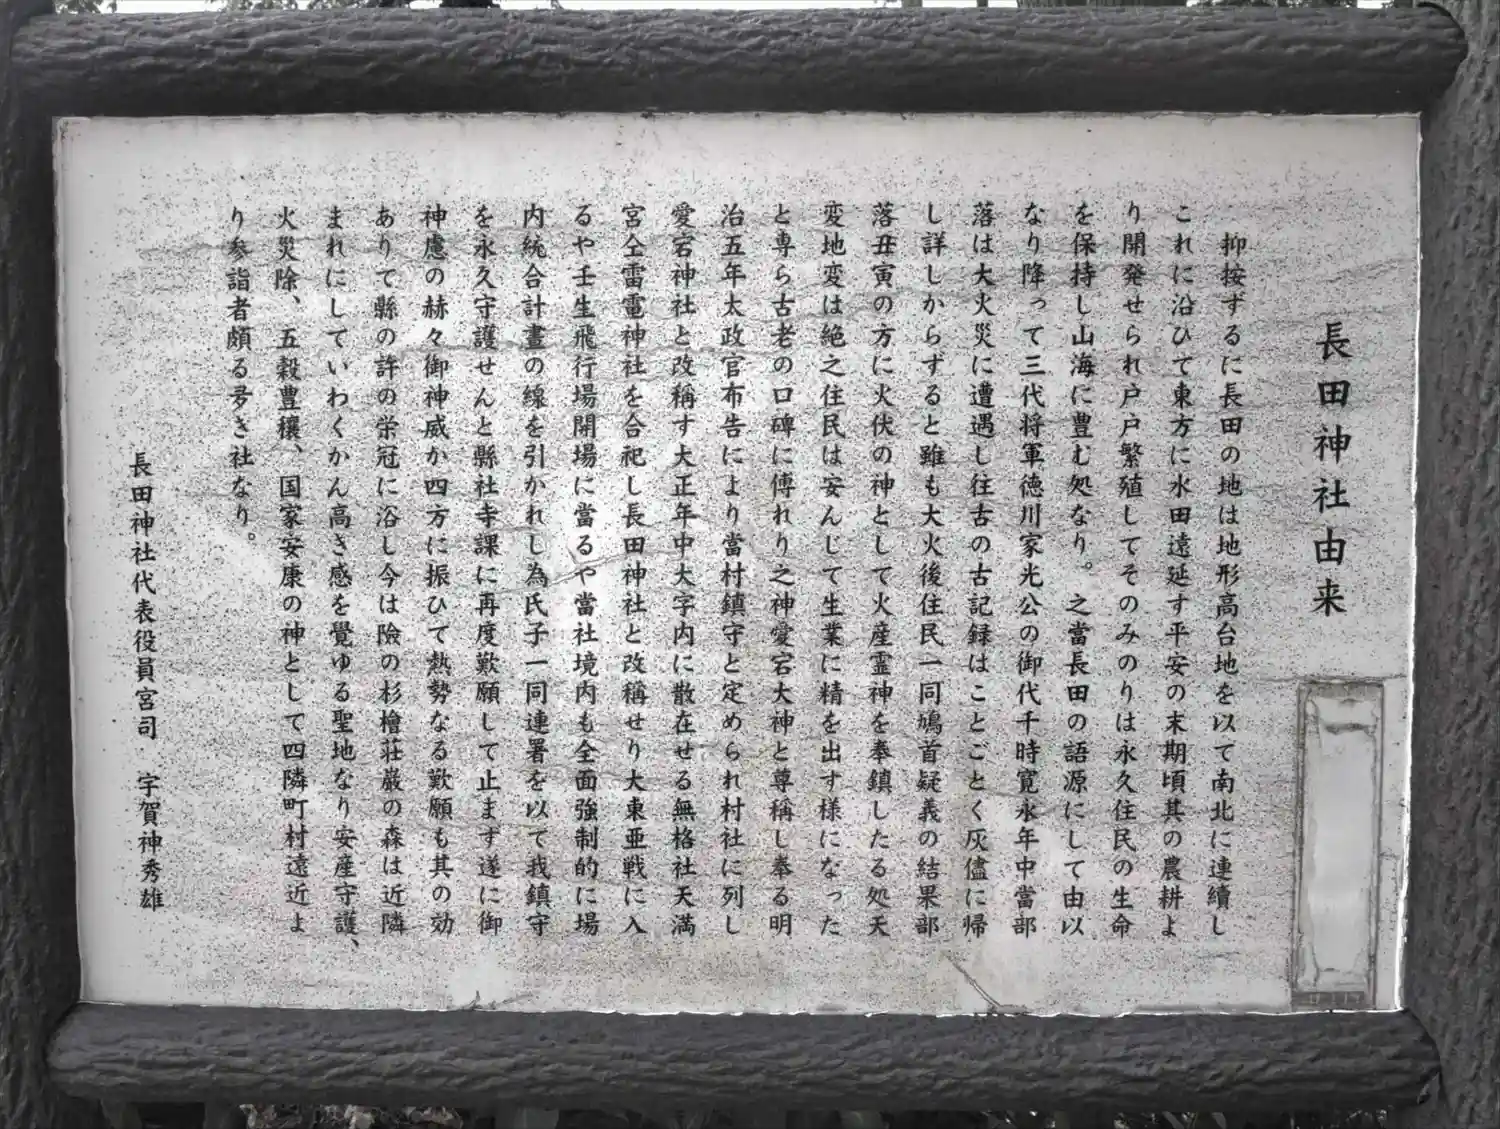 長田神社由来
抑按ずるに長田の地は地形高台地を以て南北に連續し
これに沿ひて東方に水田遠延す平安の末期頃其の農耕よ
り開発せられ戸戸繁殖してそのみのりは永久住民の生命
を保持し山海に豊む処なり。之當長田の語源にして由以
なり降って三代将軍徳川家光公の御代千時寛永年中當部
落は大火災に遭遇し往古の古記録はことごとく灰儘に帰
し詳しからずると雖も大火後住民一同鳩首疑義の結果部
落丑寅の方に火伏の神として火産霊神を奉鎮したる処天
変地変は絶之住民は安んじて生業に精を出す様になった
と専ら古老の口碑に傳れり之神愛宕大神と尊稱し奉る明
治五年太政官布告により當村鎮守と定められ村社に列し
愛宕神社と改稱す大正年中大字内に散在せる無格社天満
宮仝雷電神社を合祀し長田神社と改稱せり大東亜戦に入
るや壬生飛行場開場に當るや當社境内も全面強制的に場
内統合計畫の線を引かれし為氏子一同連署を以て我鎮守
を永久守護せんと縣社寺課に再度歎願して止まず遂に御
神慮の赫々御神威か四方に振ひて熱勢なる歎願も其の効
ありて縣の許の栄冠に浴し今は險の杉檜荘厳の森は近隣
まれにしていわくかん高き感を覺ゆる聖地なり安産守護、
火災除、五穀豊穰、国家安康の神として四隣町村遠近よ
り参詣者頗る多き社なり。
長田神社代表役員宮司　宇賀神秀雄